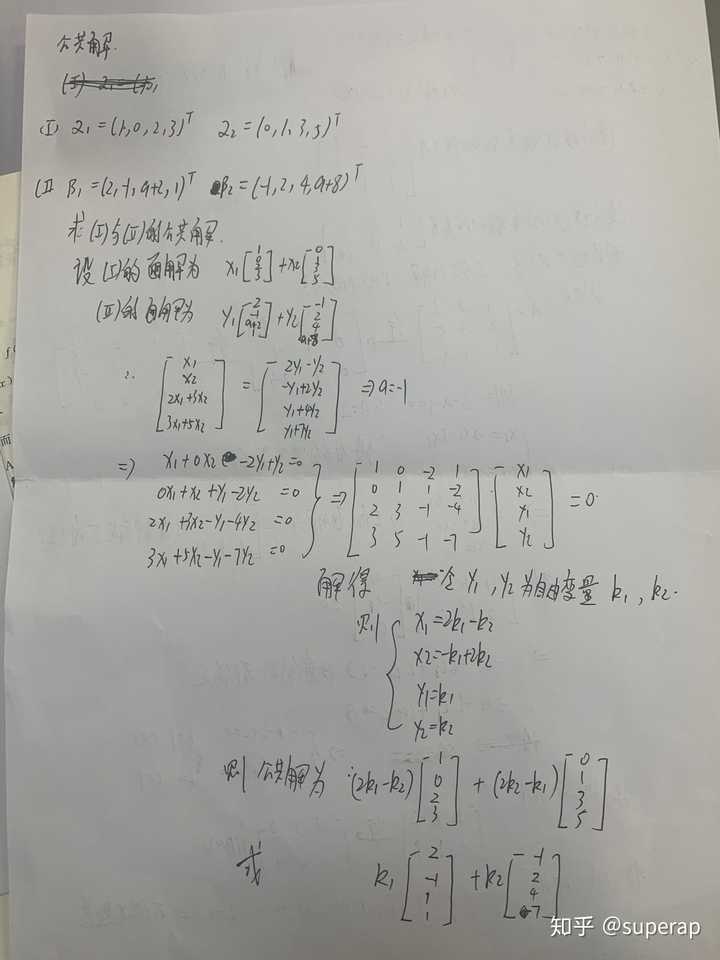 公共解.
(I) α₁=(1,0,2,3)ᵀ α₂=(0,1,3,5)ᵀ
(II β₁=(2,-1,a+2,1)ᵀ β₂=(-1,2,4,a+8)ᵀ
求(I)与(II)的公共解.
设(I)的通解为 x₁[1 0 2 3]+x₂[0 1 3 5]
(II)的通解为 y₁[2 -1 a+2 1]+y₂[-1 2 4 a+8]
∴ [x₁ x₂ 2x₁+3x₂ 3x₁+5x₂] = [2y₁-y₂ -y₁+2y₂ y₁+4y₂ y₁+7y₂] ⇒a=-1
⇒ x₁+0x₂ -2y₁+y₂=0
0x₁+x₂+y₁-2y₂ =0
2x₁+3x₂-y₁-4y₂ =0
3x₁+5x₂-y₁-7y₂ =0
⇒ [1 0 -2 1
0 1 1 -2
2 3 -1 -4
3 5 -1 -7] · [x₁ x₂ y₁ y₂] =0.
解得 令 y₁,y₂为自由变量 k₁,k₂.
则 { x₁=2k₁-k₂
x₂=-k₁+2k₂
y₁=k₁
y₂=k₂
则 公共解为 (2k₁-k₂)[1 0 2 3] + (2k₂-k₁)[0 1 3 5]
或 k₁[2 -1 1 1] +k₂[-1 2 4 7]
知乎 @superap